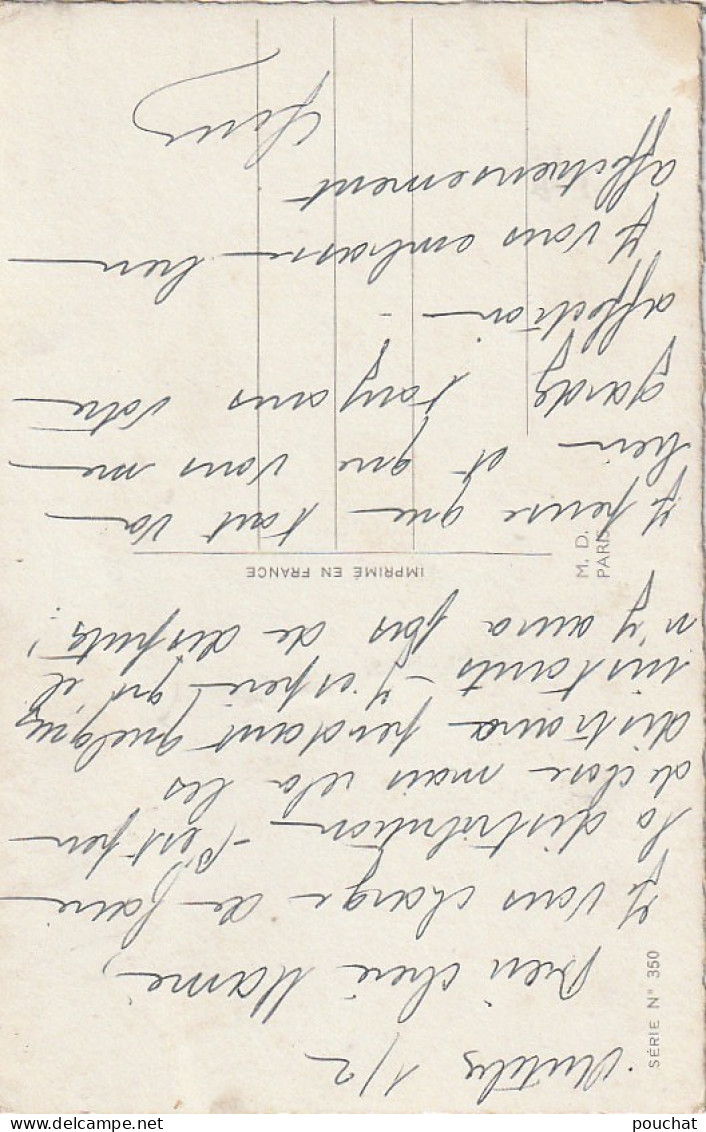 1/2
Bien chère Mamé,
Je vous charge de faire
la distribution - C'est peu
de chose mais cela les
distraira pendant quelques
instants - J'espère qu'il
n'y aura pas de dispute !
Je pense que tout va
bien et que vous me
gardez toujours votre
affection -
Je vous embrasse bien
affectueusement
IMPRIMÉ EN FRANCE
M. D.
PARIS
SÉRIE N° 350
pouchat